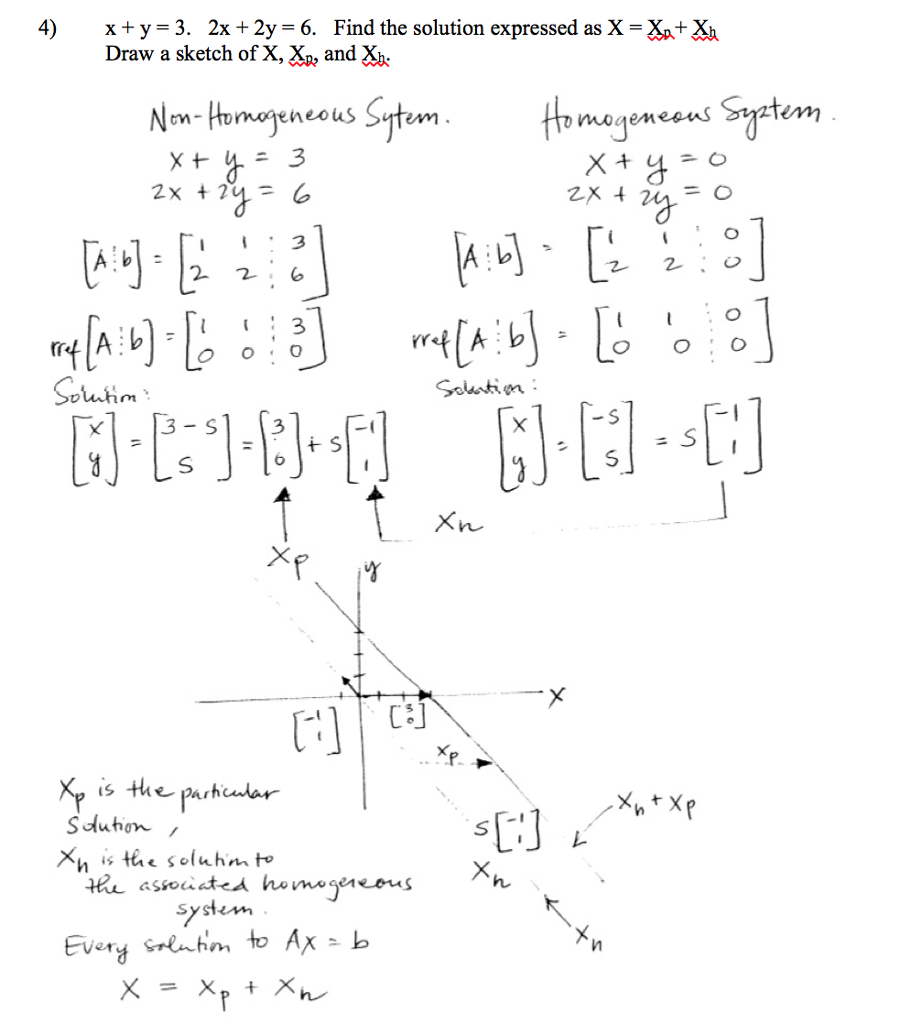 4) x + y = 3. 2x + 2y = 6. Find the solution expressed as X = Xp + Xh
Draw a sketch of X, Xp, and Xh.
Non-Homogeneous Sytem.
x + y = 3
2x + 2y = 6
[A⋮b] = [1 1 ⋮ 3
2 2 ⋮ 6]
rref [A⋮b] = [1 1 ⋮ 3
0 0 ⋮ 0]
Solution:
[x
y] = [3 - s
s] = [3
0] + s [-1
1]
Xp
Homogeneous System.
x + y = 0
2x + 2y = 0
[A⋮b] = [1 1 ⋮ 0
2 2 ⋮ 0]
rref [A⋮b] = [1 1 ⋮ 0
0 0 ⋮ 0]
Solution:
[x
y] = [-s
s] = s [-1
1]
Xh
y
X
[-1
1]
[3
0]
Xp
s [-1
1]
Xh
Xh + Xp
Xh
Xp is the particular
Solution,
Xh is the solution to
the associated homogeneous
system.
Every solution to AX = b
X = Xp + Xh